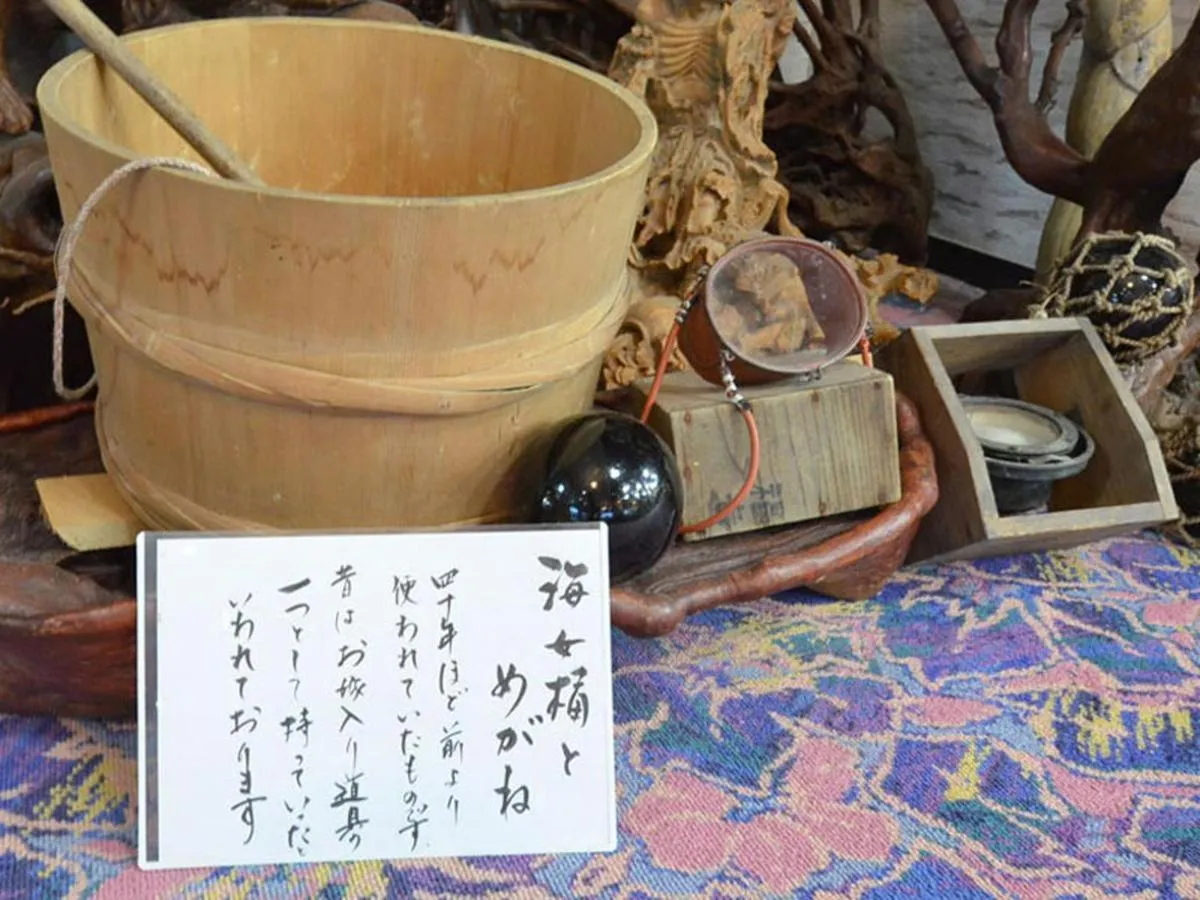 海女桶と
めがね
四十年ほど前より
使われていたものです。
昔はお嫁入り道具の
一つとして持っていたと
いわれております